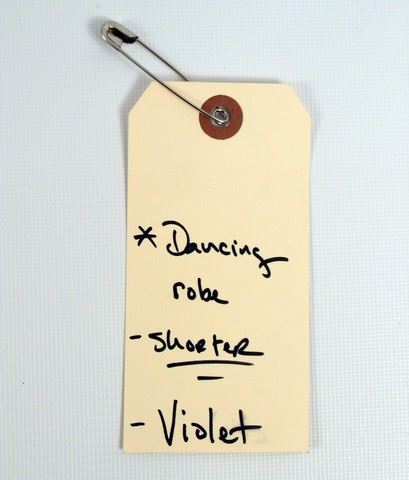 * Dancing
robe
- Shorter
- Violet